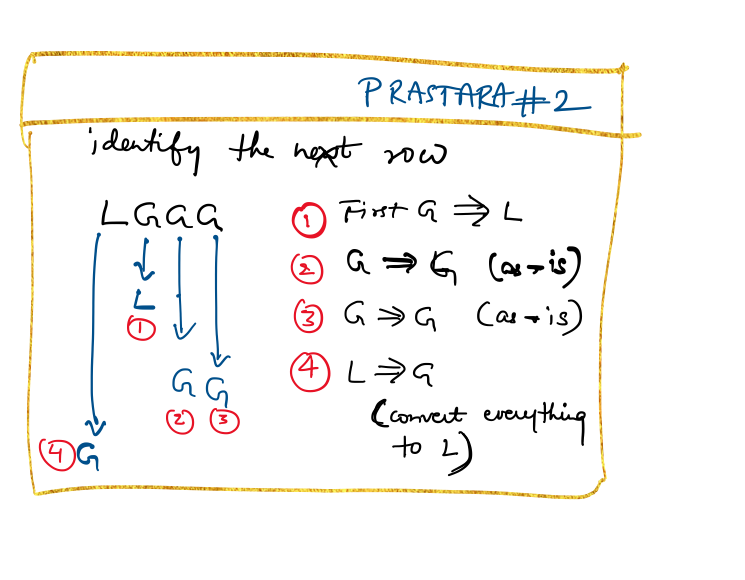 PRASTARA#2
identify the next row
L G G G
① First G ⇒ L
② G ⇒ G (as-is)
③ G ⇒ G (as-is)
④ L ⇒ G
(convert everything
to L)
L
①
G G
② ③
④ G